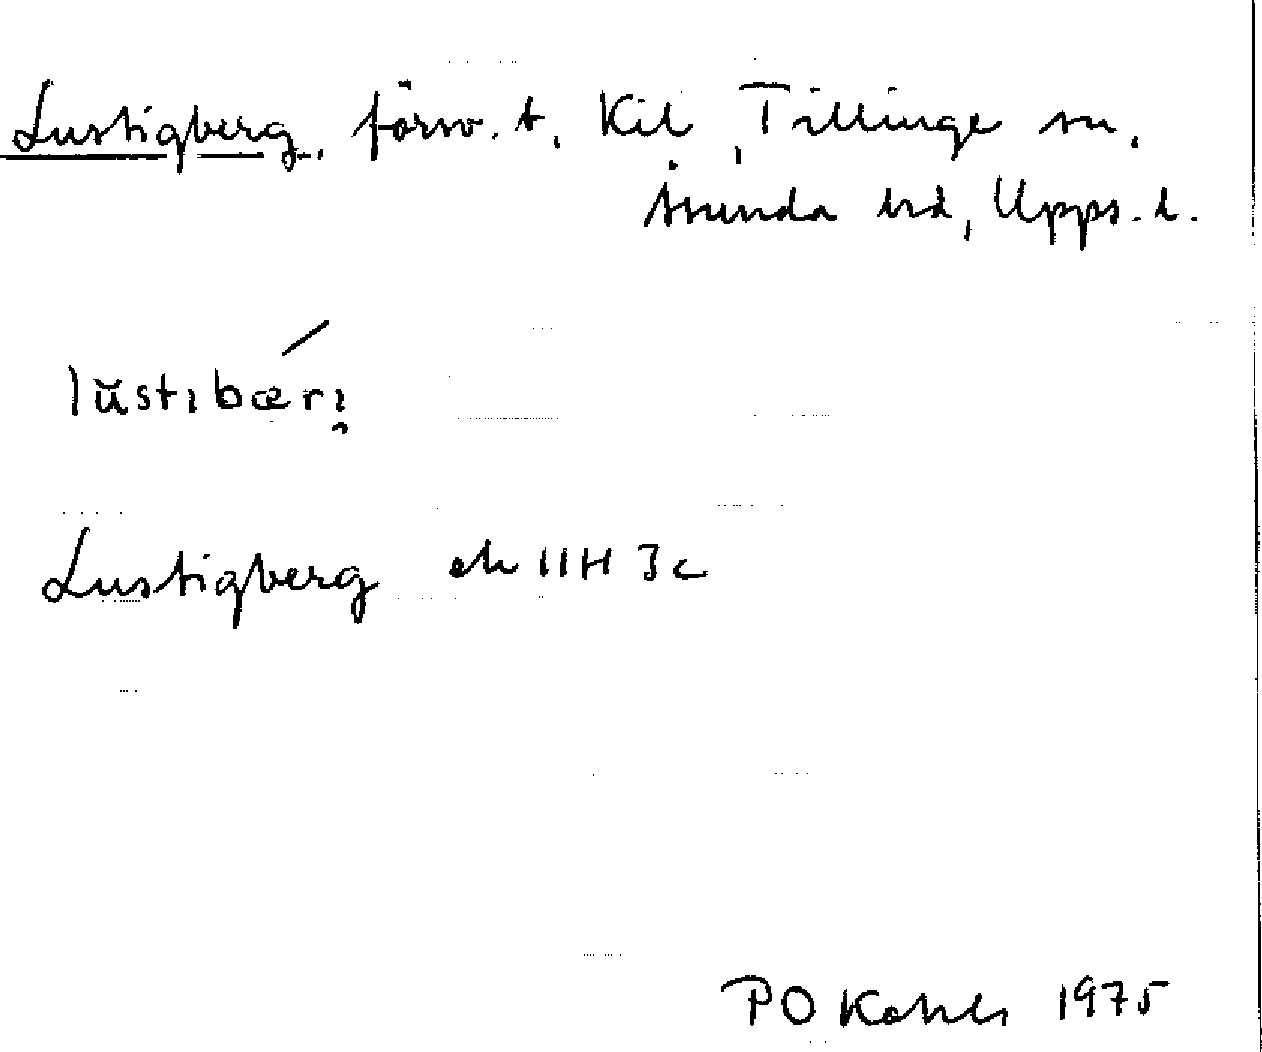 Lustigberg, försv. t. Kil, Tillinge sn,
Åsunda hd, Upps. l.
lŭstıbærı̯
Lustigberg ek 11H 3c
P O 1975